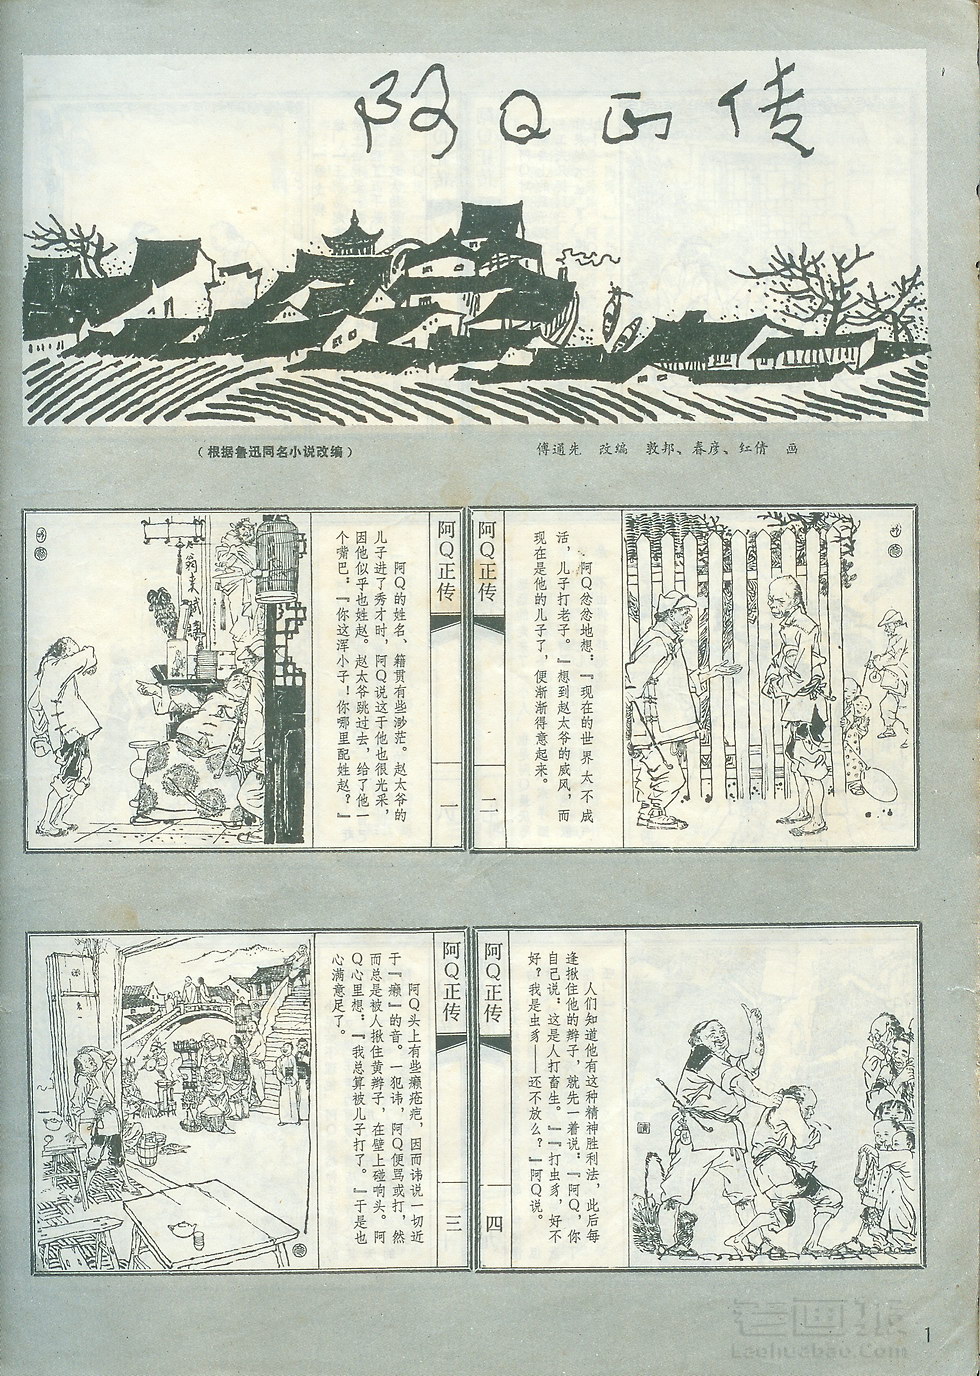 阿Q正传
（根据鲁迅同名小说改编）
傅通先 改编 敦邦、春彦、红倩 画
阿Q正传
一
阿Q的姓名、籍贯有些渺茫。赵太爷的
儿子进了秀才时，阿Q说这于他也很光采，
因他似乎也姓赵。赵太爷跳过去，给了他一
个嘴巴：『你这浑小子！你哪里配姓赵？』
阿Q正传
二
阿Q忿忿地想：『现在的世界太不成
活，儿子打老子。』想到赵太爷的威风，而
现在是他的儿子了，便渐渐得意起来。
阿Q正传
三
阿Q头上有些癞疮疤，因而讳说一切近
于『癞』的音。一犯讳，阿Q便骂或打，然
而总是被人揪住黄辫子，在壁上碰响头。阿
Q心里想：『我总算被儿子打了。』于是也
心满意足了。
阿Q正传
四
人们知道他有这种精神胜利法，此后每
逢揪住他的辫子，就先一着说：『阿Q，你
自己说：这是人打畜生。』『打虫豸，好不
好？我是虫豸——还不放么？』阿Q说。
老画报
Laohuabao.Com
1